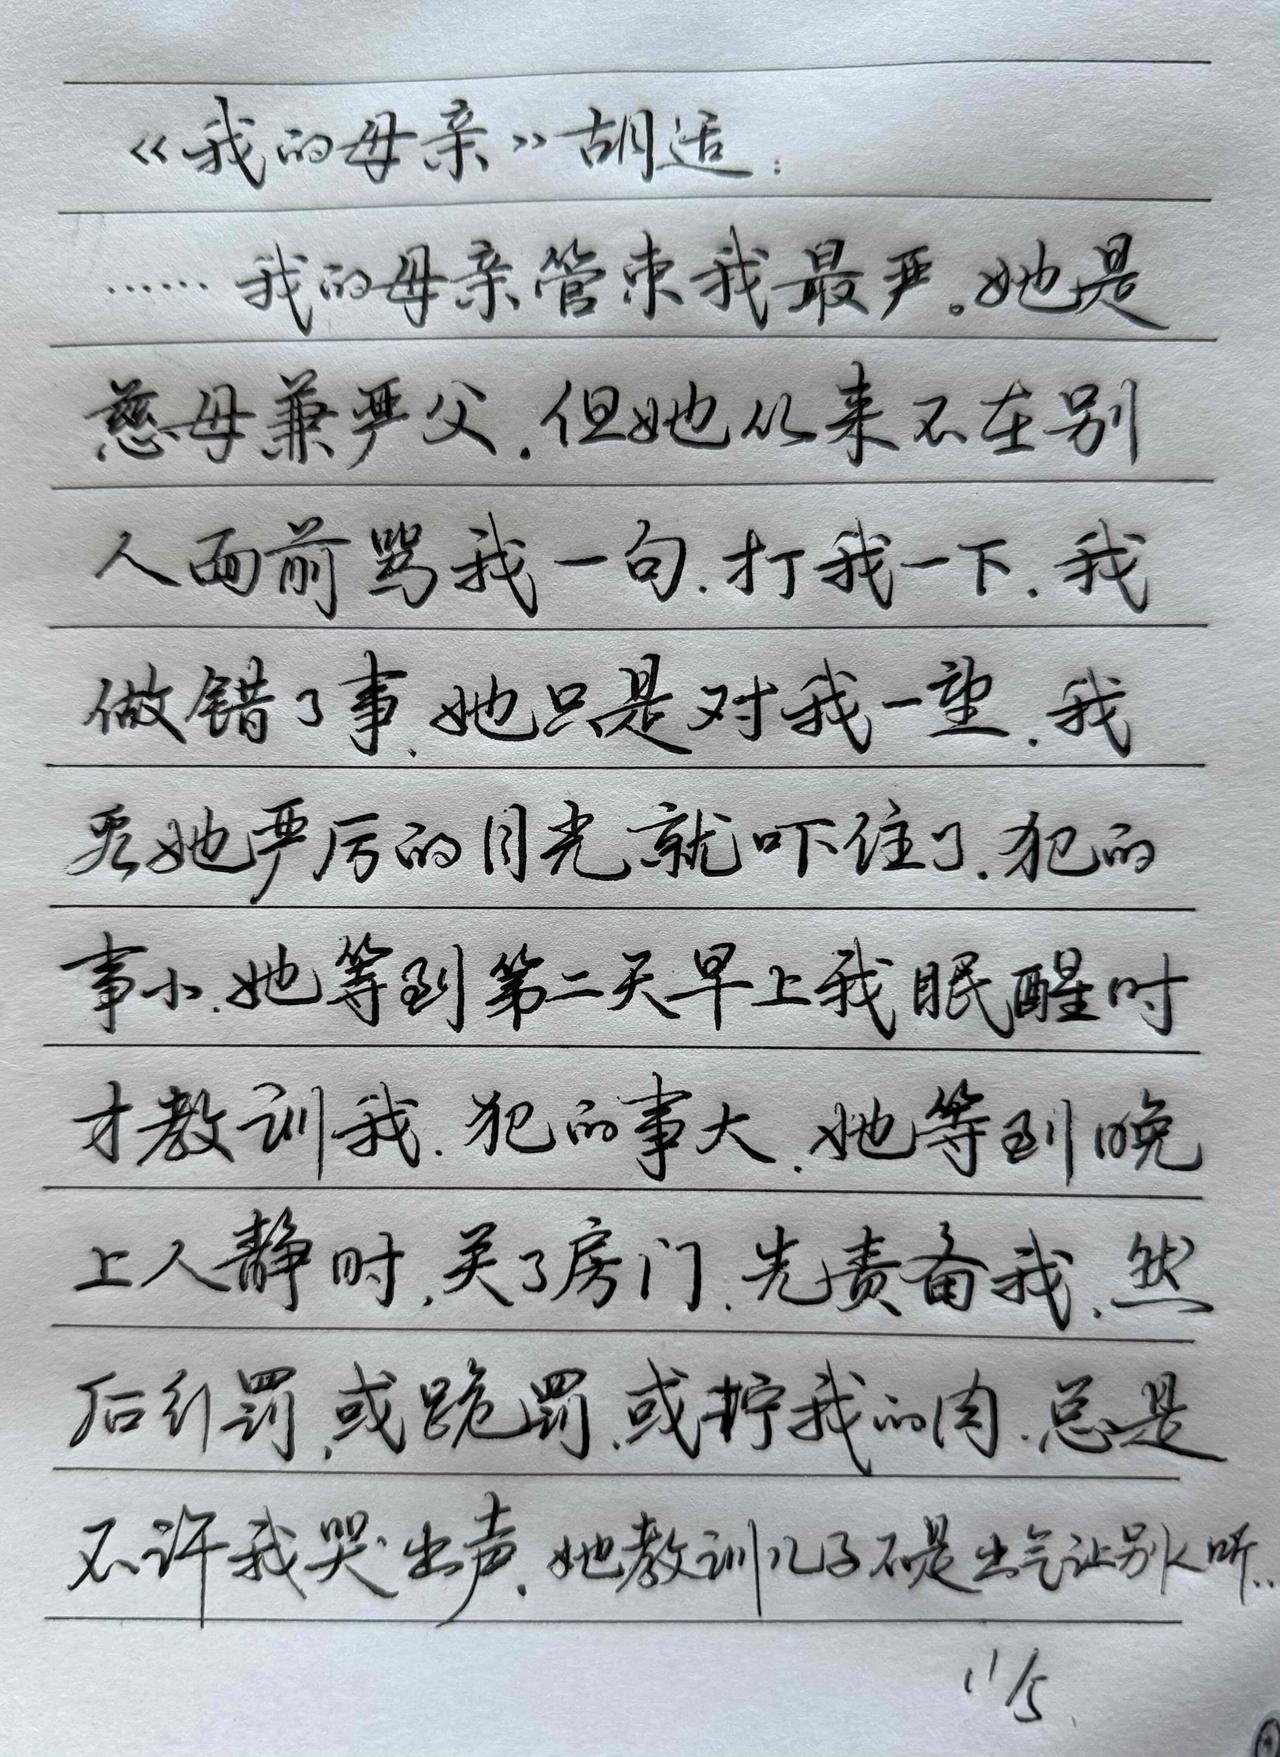 《我的母亲》胡适：
……我的母亲管束我最严。她是
慈母兼严父.但她从来不在别
人面前骂我一句.打我一下.我
做错了事.她只是对我一望.我
看她严厉的目光就吓住了.犯的
事小.她等到第二天早上我眠醒时
才教训我.犯的事大.她等到晚
上人静时.关了房门.先责备我.然
后行罚.或跪罚.或拧我的肉.总是
不许我哭出声.她教训儿子不是出气让别人听..
11/5